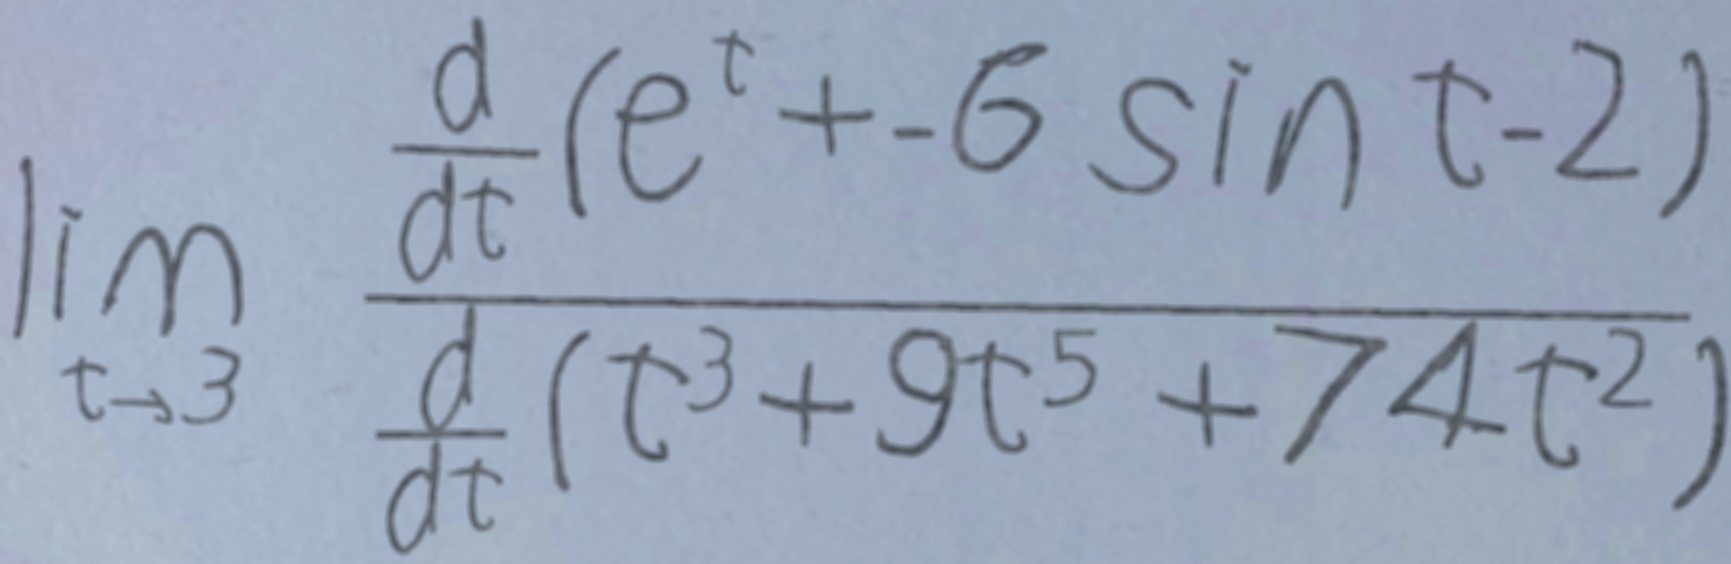 \lim_{t \to 3} \frac{\frac{d}{dt}(e^t + -6 \sin t - 2)}{\frac{d}{dt}(t^3 + 9t^5 + 74t^2)}